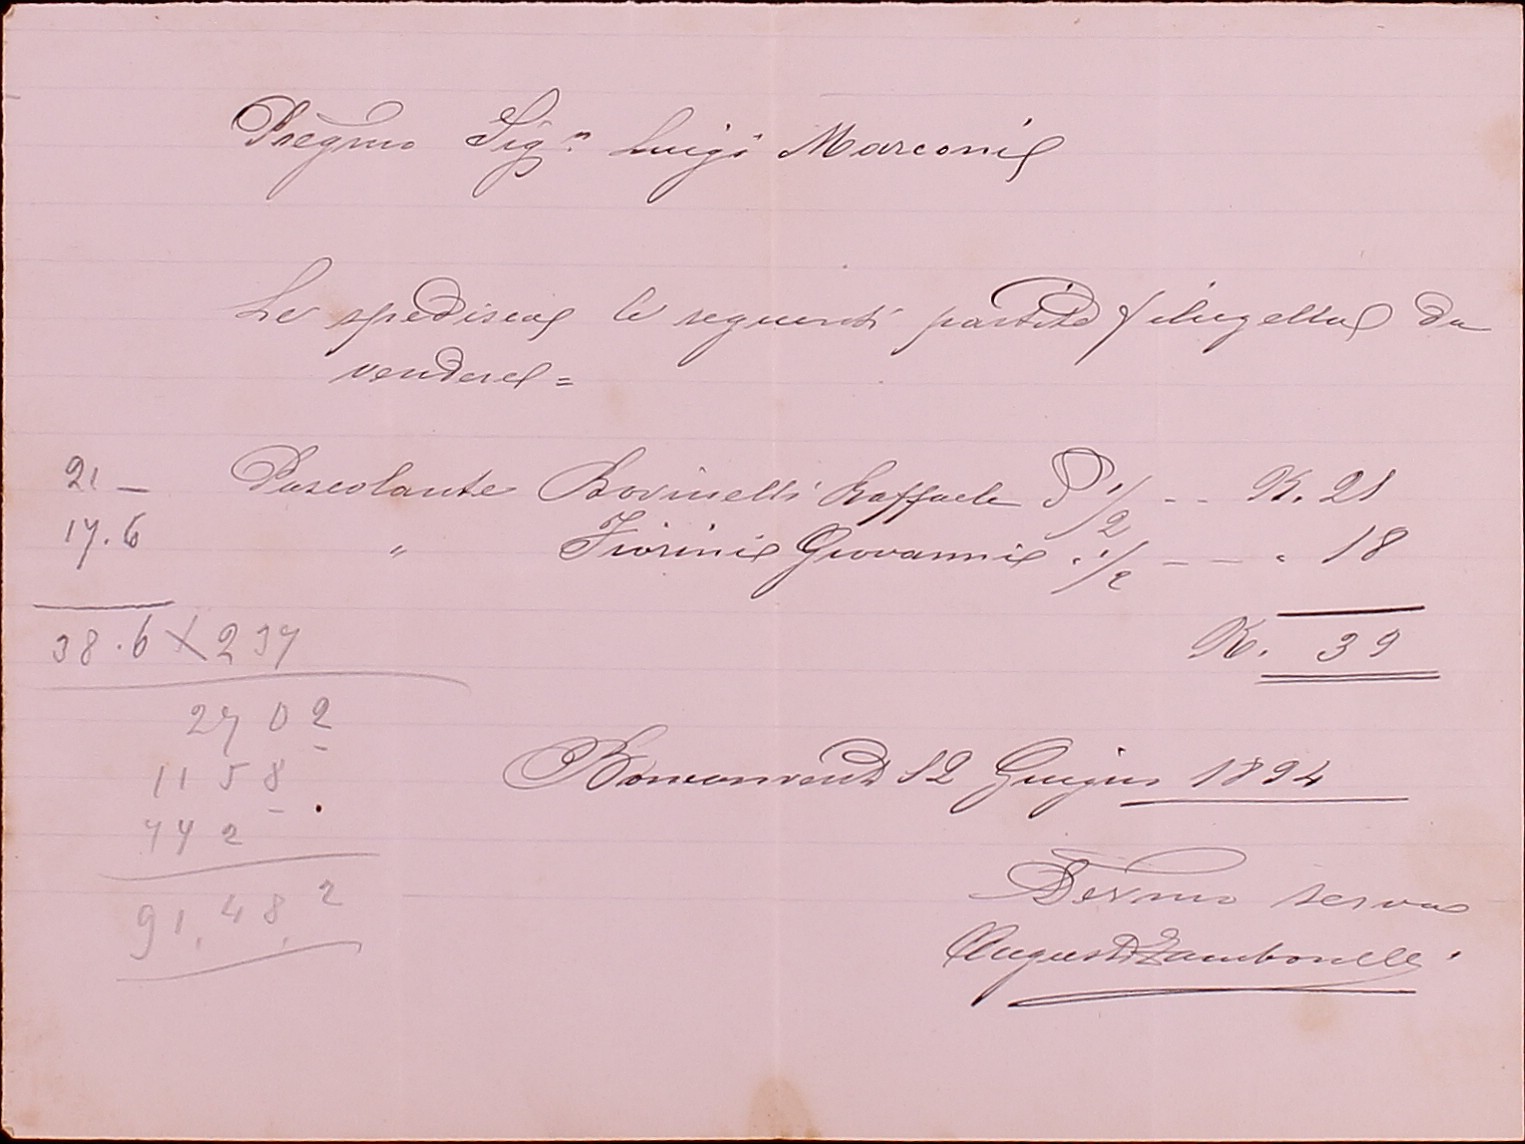 Pregmo Sigr Luigi Marconi
Le spedisco le seguenti partite filugello da
vendere =
21 — Pascolante Bovinelli Raffaele P 1/2 -- K. 21
17.6 " Fiorini Giovanni " 1/2 — — " 18
38.6 X 237 K. 39
2702
1158
772
91,48,2
Bonconvento 12 Giugno 1894
Devmo servo
Augusto Zambonelli